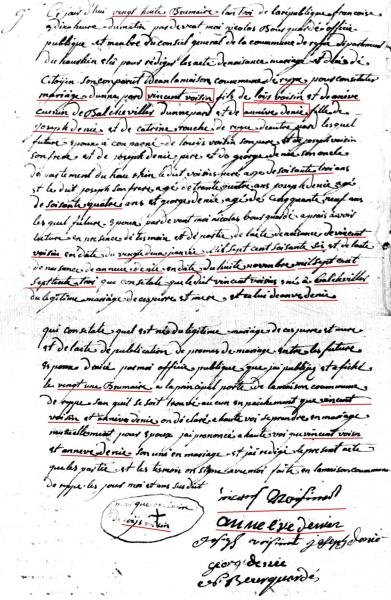 9e
Ce jourd'hui vingt huite Brumaire l'an troi de la republique françoise
a dix heure du matin par devent moi nicolas bourquardé officie
publique et menbre du conseil general de la commune de reppe departement
du haushin elu pour rediger les acte de naisance mariage et deces de
Citoyin son conparut idean la maison commune de reppe pour constater
mariage dunne pard vincent voisin fils de lois voisin et de anneve
cursin de Balchevillés dunne pard et de annéve denié fille de
joseph denie et de catrine touche de reppe deautre pard les quel
future epoux a con pagné de louis voisin son pere et de joseph voisin
son frere et de joseph denie pere et de george denie son oncle
departement du hau rhin le dit voisin pere age de soisante trois ans
et le dit joseph son frere age de trante quatre ans joseph denie agé
de soisante quatre ans et george denie agé de cinquante neuf ans
les quel future epoux par devent moi nicolas bourquardé auroi avoir
lecture en presence de temoin et des partie de lacte de naisance de vincent
voisin en date du vingt deux janvie mil sept cent soisante six et de lacte
de naisance de anneve denie en date du huite novembre mil sept cent
septente troi que constate que le dit vincent voisin né a balcheviller
du legitime mariage de ces pere et mere et celui de anve denie
qui constate quel est né du legitime mariage de ces pere et mere
et de lacte de publication de promes de mariage entre les future
epoux dresé par moi officie publique que jai publiez et afiché
le vingt une Brumaire a la principal porte de la maison commune
de reppe san qui se soit trouvé aucun en paichement que vincent
voisin et annéve denie on déclaré a haute voi se prendre en mariage
mutuellement pour epoux jai prononcé a haute voi que vincent voisin
et anneve denie son uni en mariage et jai redigé le present acte
que les partie et les temoin on signe avec moi faite en la maison commune
de reppe les jour moi et ans susdit
marque ordinaire
de lois voisin
vincent voisinet
anneléve denier
josef voisinet joseph denie
georg denie
N Bourquardé